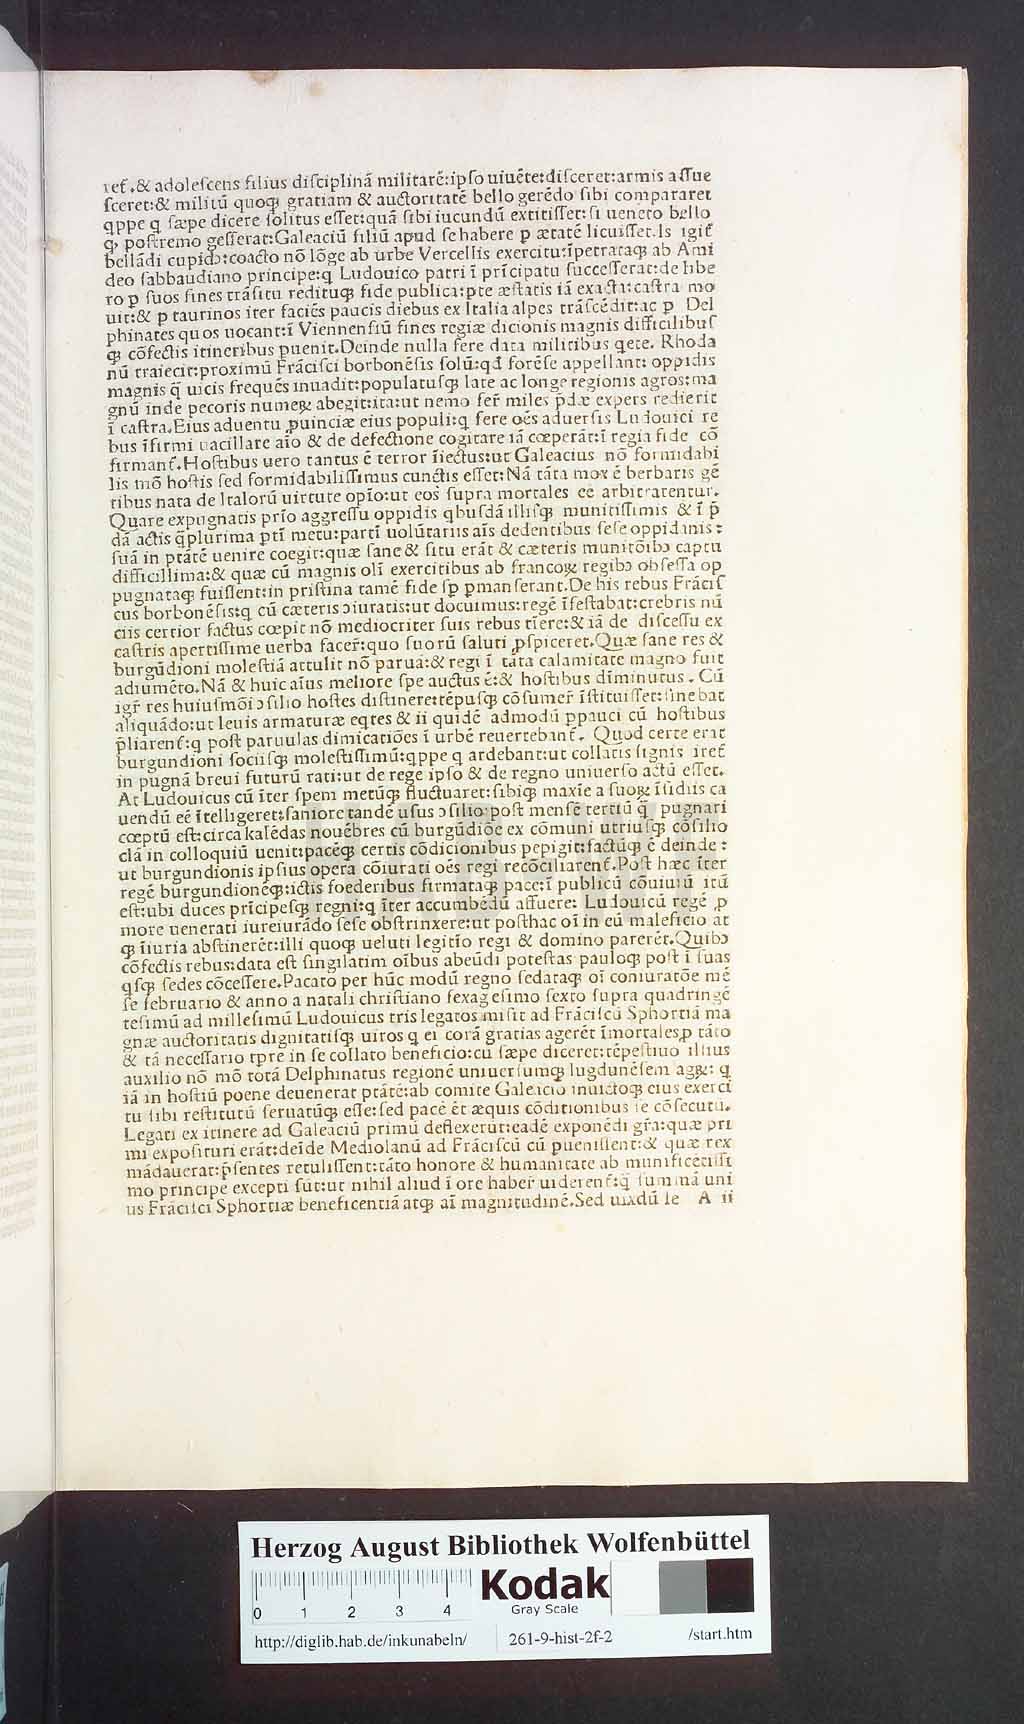 ret᷑.& adolescens filius disciplinā militarē:ipso uiuēte:disceret:armis assue
sceret:& militū quoqꝫ gratiam & auctoritatē bello gerēdo sibi compararet
qppe q sæpe dicere solitus esset:quā sibi iucundū extitisset:si ueneto bello
qꝫ postremo gesserat:Galeaciū filiū apud se habere ꝑ ætatē licuisset.Is igit᷑
bellādi cupidꝰ:coacto nō lōge ab urbe Vercellis exercitu:īpetrataqꝫ ab Ami
deo sabbaudiano principe:q Ludouico patri ī prīcipatu successerat:de libe
ro ꝑ suos fines trāsitu redituqꝫ fide publica:pte æstatis iā exacta:castra mo
uit:& ꝑ taurinos iter faciēs paucis diebus ex Italia alpes trāscēdit:ac ꝑ Del
phinates quos uocant:ī Viennensiū fines regiæ dicionis magnis difficilibus
qꝫ cōfectis itineribus puenit.Deinde nulla fere data militibus qete. Rhoda
nū traiecit:proximū Frācisci borbonēsis solū:qđ forēse appellant: oppidis
magnis q̄ uicis frequēs inuadit:populatusqꝫ late ac longe regionis agros:ma
gnū inde pecoris numeꝝ abegit:ita:ut nemo fer᷑ miles p̄dæ expers redierit
ī castra.Eius aduentu ꝓuinciæ eius populi:q fere oēs aduersis Ludouici re
bus īfirmi uacillare aīo & de defectione cogitare iā cœperāt:ī regia fide cō
firmant᷑.Hostibus uero tantus ē terror īiectus:ut Galeacius nō formidabi
lis mō hostis sed formidabilissimus cunctis esset:Nā tāta mox ē berbaris gē
tibus nata de Italorū uirtute opīo:ut eos supra mortales eē arbitrarentur.
Quare expugnatis prīo aggressu oppidis qbusdā illisqꝫ munitissimis & ī p̄
dā actis q̄plurima ptī metu:partī uolūtariis aīs dedentibus sese oppidanis:
suā in ptātē uenire coegit:quæ sane & situ erāt & cæteris munitōibꝰ captu
difficillima:& quæ cū magnis olī exercitibus ab francoꝝ regibꝰ obsessa op
pugnataqꝫ fuissent:in pristina tamē fide sꝑ ꝑmanserant.De his rebus Frācis
cus borbonēsis:q cū cæteris ↄiuratis:ut docuimus:regē īfestabat:crebris nū
ciis certior factus cœpit nō mediocriter suis rebus tīere:& iā de discessu ex
castris apertissime uerba facer᷑:quo suorū saluti ꝓspiceret.Quæ sane res &
burgūdioni molestiā attulit nō paruā:& regi ī tāta calamitate magno fuit
adiumēto.Nā & huic aīus meliore spe auctus ē:& hostibus dīminutus . Cū
igr᷑ res huiusmōi ↄsilio hostes distinere:tēpusqꝫ cōsumer᷑ īstituisset:sinebat
aliquādo:ut leuis armaturæ eqtes & ii quidē admodū ppauci cū hostibus
p̄liarent᷑:q post paruulas dimicatiōes ī urbē reuertebant᷑. Quod certe erat
burgundioni sociisqꝫ molestissimū:qppe q ardebant:ut collatis signis iret᷑
in pugnā breui futurū rati:ut de rege ipso & de regno uniuerso actū esset.
At Ludouicus cū īter spem metūqꝫ fluctuaret:sibiqꝫ maxīe a suoꝝ īsidiis ca
uendū eē ītelligeret:saniore tandē usus ↄsilio post mensē tertiū q̄ pugnari
cœptū est:circa kalēdas nouēbres cū burgūdiōe ex cōmuni utriusqꝫ cōsilio
clā in colloquiū uenit:pacēqꝫ certis cōdicionibus pepigit:factūqꝫ ē deinde :
ut burgundionis ipsius opera cōiurati oēs regi recōciliarent᷑.Post hæc īter
regē burgundionēqꝫ:ictis foederibus firmataqꝫ pace:ī publicū cōuiuiū itū
est:ubi duces prīcipesqꝫ regni:q īter accumbēdū affuere: Ludouicū regē ꝓ
more uenerati iureiurādo sese obstrinxere:ut posthac oī in eū maleficio at
qꝫ īiuria abstinerēt:illi quoqꝫ ueluti legitīo regi & domino parerēt.Quibꝰ
cōfectis rebus:data est singilatim oībus abeūdi potestas pauloqꝫ post ī suas
qsqꝫ sedes cōcessere.Pacato per hūc modū regno sedataqꝫ oī coniuratōe mē
se februario & anno a natali christiano sexagesimo sexto supra quadringē
tesimū ad millesimū Ludouicus tris legatos misit ad Frāciscū Sphortiā ma
gnæ auctoritatis dignitatisqꝫ uiros q ei corā gratias agerēt īmortales,ꝓ tāto
& tā necessario tꝑre in se collato beneficio:cū sæpe diceret:tēpestiuo illius
auxilio nō mō totā Delphinatus regionē uniuersumqꝫ lugdunēsem agꝝ: q
iā in hostiū poene deuenerat ptātē:ab comite Galeacio inuictoqꝫ eius exerci
tu sibi restitutū seruatūqꝫ esse:sed pacē ēt æquis cōditionibus se cōsecutū.
Legati ex itinere ad Galeaciū primū deflexerūt:eadē exponēdi gr̄a:quæ pri
mi exposituri erāt:deīde Mediolanū ad Frāciscū cū puenissent:& quæ rex
mādauerat:p̄sentes retulissent:tāto honore & humanitate ab munificētissi
mo principe excepti sūt:ut nihil aliud ī ore haber᷑ uiderent᷑:q̄ summā uni
us Frācisci Sphortiæ beneficentiā atqꝫ aī magnitudinē.Sed uixdū se A ii
HAB WF
Herzog August Bibliothek Wolfenbüttel
0 1 2 3 4
Kodak
Gray Scale
http://diglib.hab.de/inkunabeln/ 261-9-hist-2f-2 /start.htm